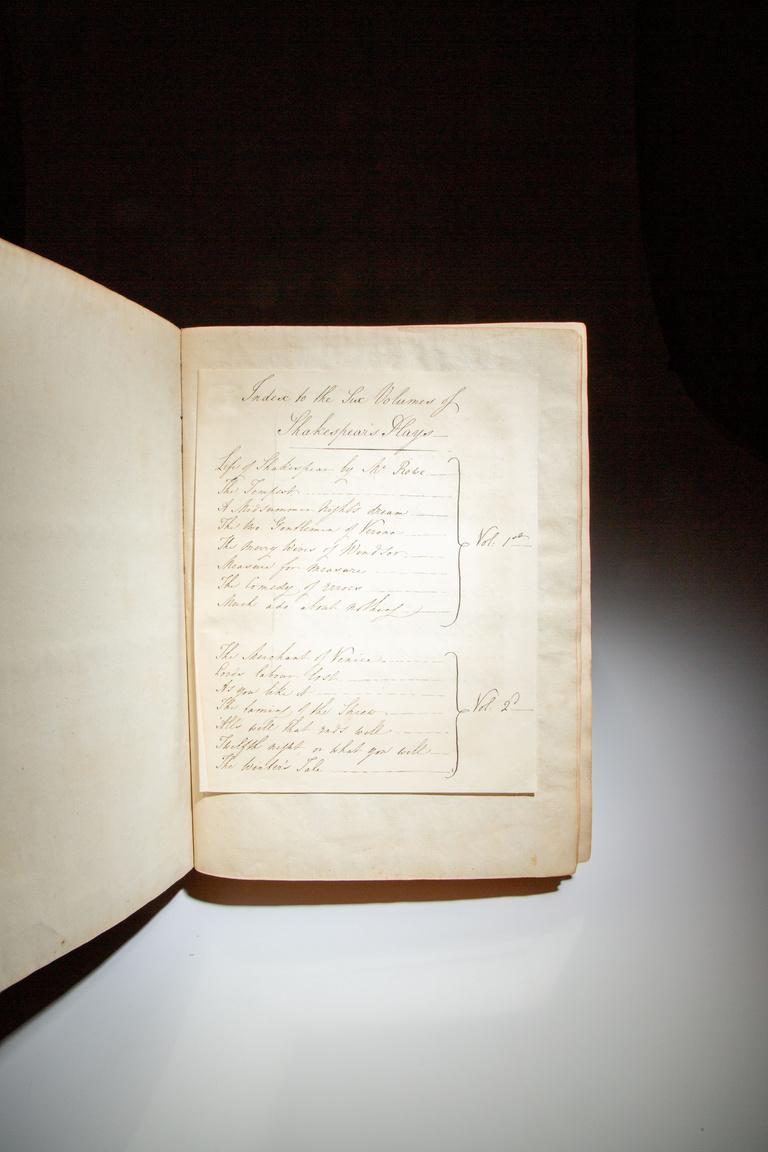 Index to the Six Volumes of
Shakespear's Plays
Life of Shakespear by Mr Rowe
The Tempest
A Midsummer Night's dream
The two Gentlemen of Verona
The merry Wives of Windsor
Measure for measure
The Comedy of errors
Much ado about nothing
Vol: 1st
The Merchant of Venice
Loves labour lost
As you like it
The taming of the Shrew
All's well that ends well
Twelfth night or what you will
The Winter's Tale
Vol. 2d